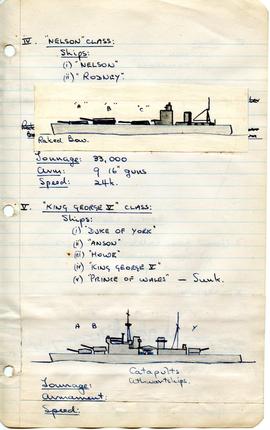 IV. "NELSON" CLASS:
Ships:
(i) "NELSON"
(ii) "RODNEY"
"A" "B" "C"
Raked Bow.
Tonnage: 33,000
Arm: 9 16" guns
Speed: 24k.
V. "KING GEORGE V" CLASS:
Ships:
(i) "DUKE OF YORK"
(ii) "ANSON"
(iii) "HOWE"
(iv) "KING GEORGE V"
(v) "PRINCE OF WALES" — Sunk.
A B Y
Catapults
athwartships.
Tonnage:
Armament:
Speed: